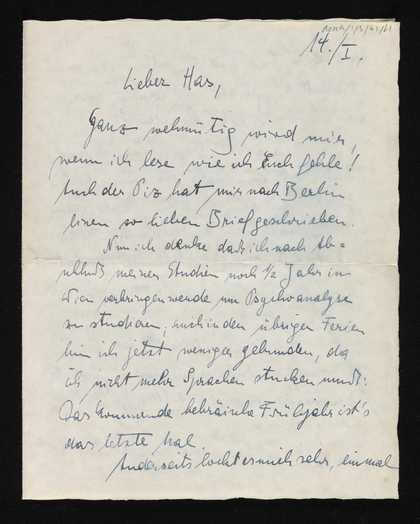 14./I.
Lieber Has,
Ganz wehmütig wird mir,
wenn ich lese wie ich Euch fehle!
Auch der Piz hat mir nach Berlin
einen so lieben Brief geschrieben.
Nun ich denke daß ich nach Ab-
schluß meiner Studien noch ½ Jahr in
Wien verbringen werde um Psychoanalyse
zu studieren; auch in den übrigen Ferien
bin ich jetzt weniger gebunden, da
ich nicht mehr Sprachen stucken muß:
Das kommende hebräische Frühjahr ist's
das letzte Mal.
Anderseits lockt es mich sehr, einmal